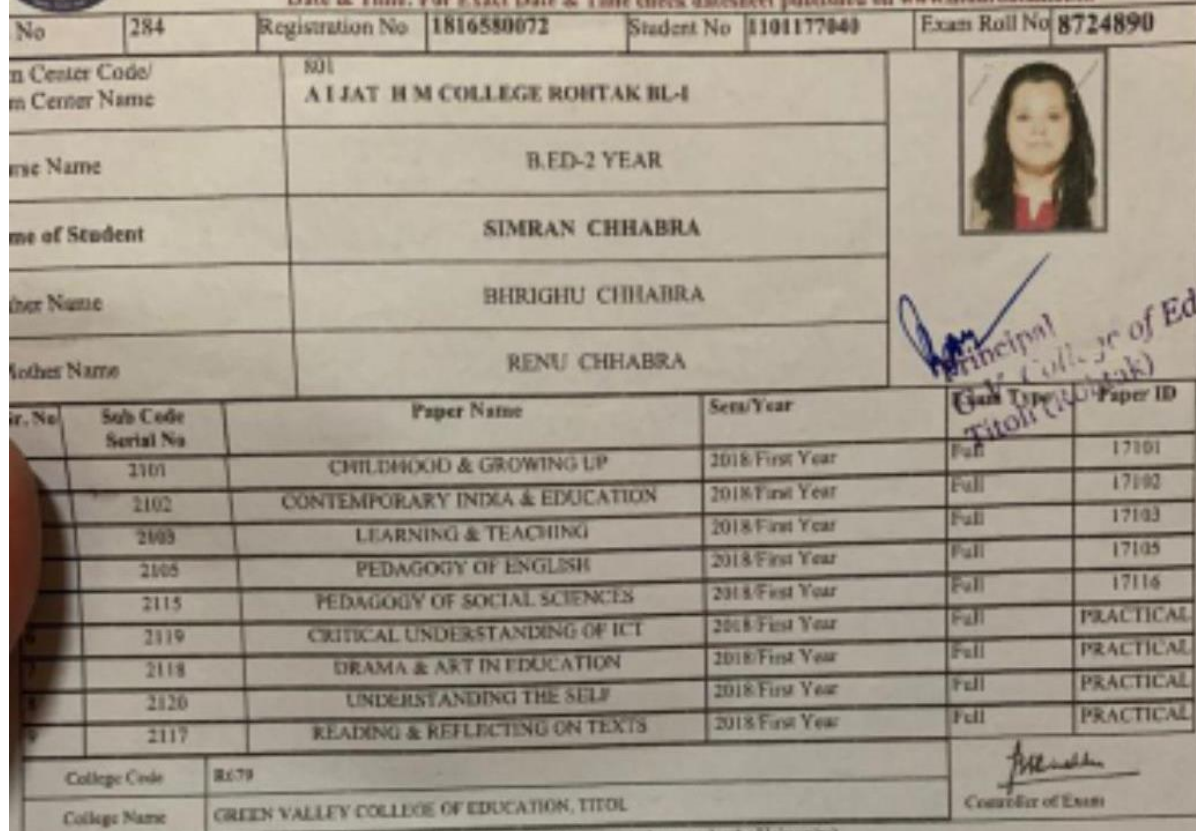 Date & Time: For Exact Date & Time check datesheet published on
No 284 Registration No 1816580072 Student No 1101177040 Exam Roll No 8724890
Center Code/ 801
Center Name A I JAT H M COLLEGE ROHTAK BL-I
rse Name B.ED-2 YEAR
me of Student SIMRAN CHHABRA
ther Name BHRIGHU CHHABRA
Mother Name RENU CHHABRA
Principal
G.V. College of Ed
Titoli (Rohtak)
Sr. No Sub Code Serial No Paper Name Sem/Year Exam Type Paper ID
2101 CHILDHOOD & GROWING UP 2018/First Year Full 17101
2102 CONTEMPORARY INDIA & EDUCATION 2018/First Year Full 17102
2103 LEARNING & TEACHING 2018/First Year Full 17103
2105 PEDAGOGY OF ENGLISH 2018/First Year Full 17105
2115 PEDAGOGY OF SOCIAL SCIENCES 2018/First Year Full 17116
6 2119 CRITICAL UNDERSTANDING OF ICT 2018/First Year Full PRACTICAL
7 2118 DRAMA & ART IN EDUCATION 2018/First Year Full PRACTICAL
8 2120 UNDERSTANDING THE SELF 2018/First Year Full PRACTICAL
9 2117 READING & REFLECTING ON TEXTS 2018/First Year Full PRACTICAL
College Code R679
College Name GREEN VALLEY COLLEGE OF EDUCATION, TITOL
Controller of Exam